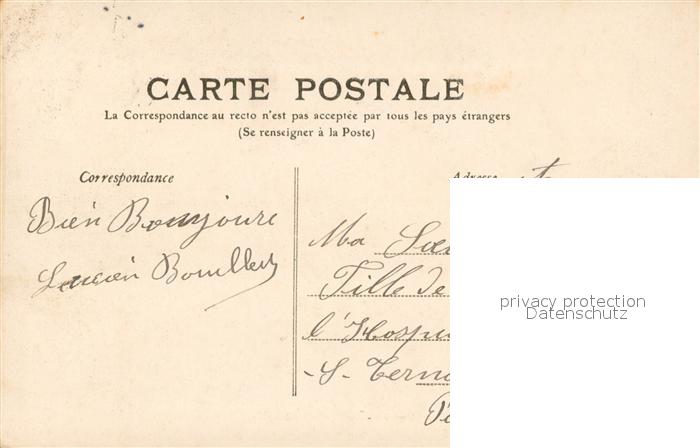 CARTE POSTALE
La Correspondance au recto n'est pas acceptée par tous les pays étrangers
(Se renseigner à la Poste)
Correspondance
Adresse
Bien Bonjoure
Lucien
Ma Soe
Fille de
l'Hosp
S-
privacy protection
Datenschutz